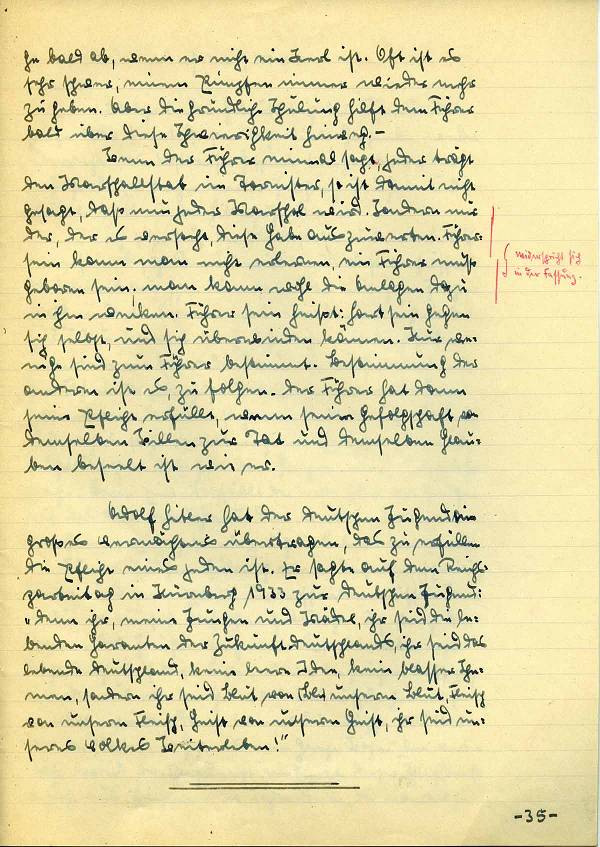 he bald ab, wenn er nicht ein Kerl ist. Oft ist es
sehr schwer, einem Pimpfen immer wieder mehr
zu geben. Aber die gründliche Schulung hilft dem Führer
bald über diese Schwierigkeit hinweg.-
Wenn der Führer einmal sagt, jeder trägt
den Marschallstab im Tornister, so ist damit nicht
gesagt, daß nun jeder Marschall wird. Sondern nur
der, der es versucht, diese Gabe auszuwerten. Führer-
sein kann man nicht erlernen, ein Führer muß
geboren sein; man kann wohl die Anlagen dazu
in ihm wecken. Führer sein heißt: hart sein gegen
sich selbst, und sich überwinden können. Nur we-
nige sind zum Führer bestimmt. Bestimmung der
anderen ist es, zu folgen. Der Führer hat dann
seine Pflicht erfüllt, wenn seine Gefolgschaft von
demselben Willen zur Tat und demselben Glau-
ben beseelt ist wie er.
widerspricht sich
in der Fassung.
Adolf Hitler hat der deutschen Jugend ein
großes Vermächtnis übertragen, das zu erfüllen
die Pflicht eines jeden ist. Er sagte auf dem Reichs-
parteitag in Nürnberg 1933 zur deutschen Jugend:
"Denn ihr, meine Jungen und Mädel, ihr seid die le-
benden Garanten der Zukunft Deutschlands, ihr seid das
lebende Deutschland, keine leere Idee, kein blasser Sche-
men, sondern ihr seid Blut von unserm Blut, Fleisch
von unserm Fleisch, Geist von unserm Geist, ihr seid un-
seres Volkes Weiterleben!"
-35-